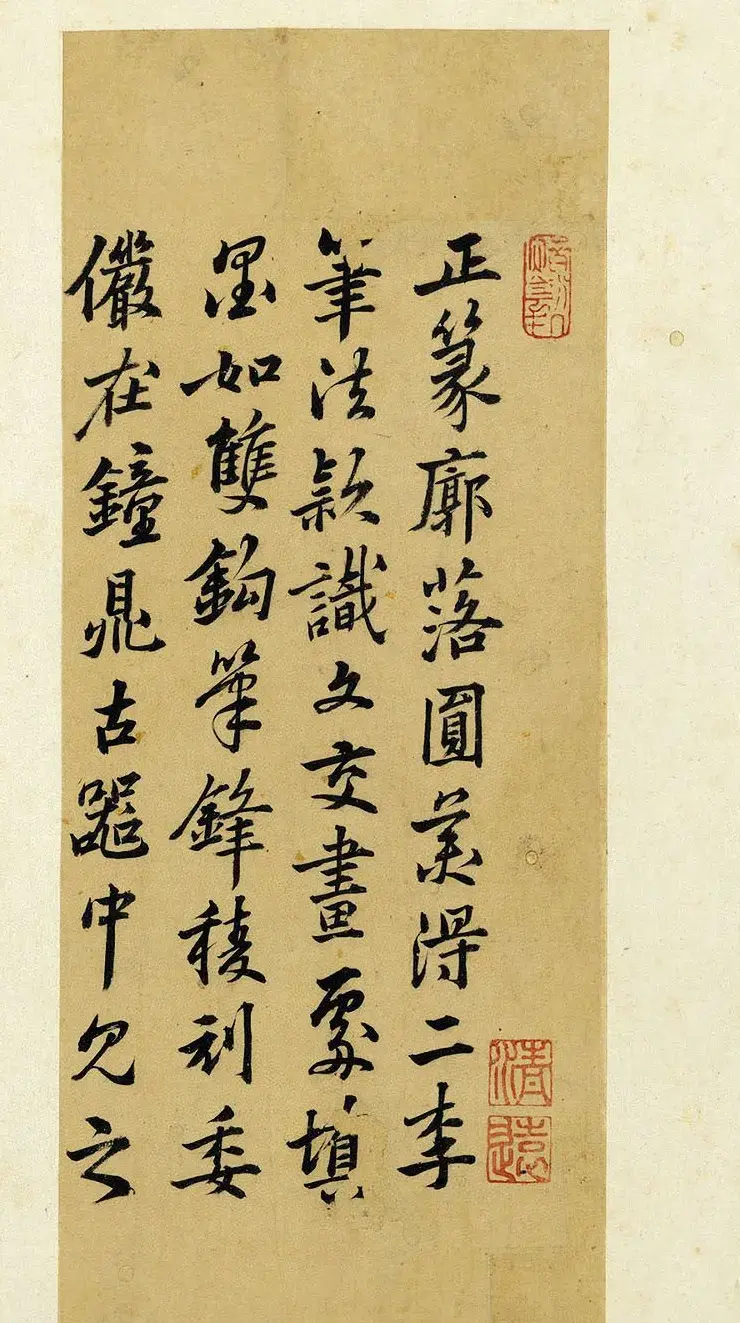 正篆廓落圓美得二李
筆法款識文交畫處填
墨如雙鉤筆鋒稜利委
儼在鐘鼎古器中見之
清遠